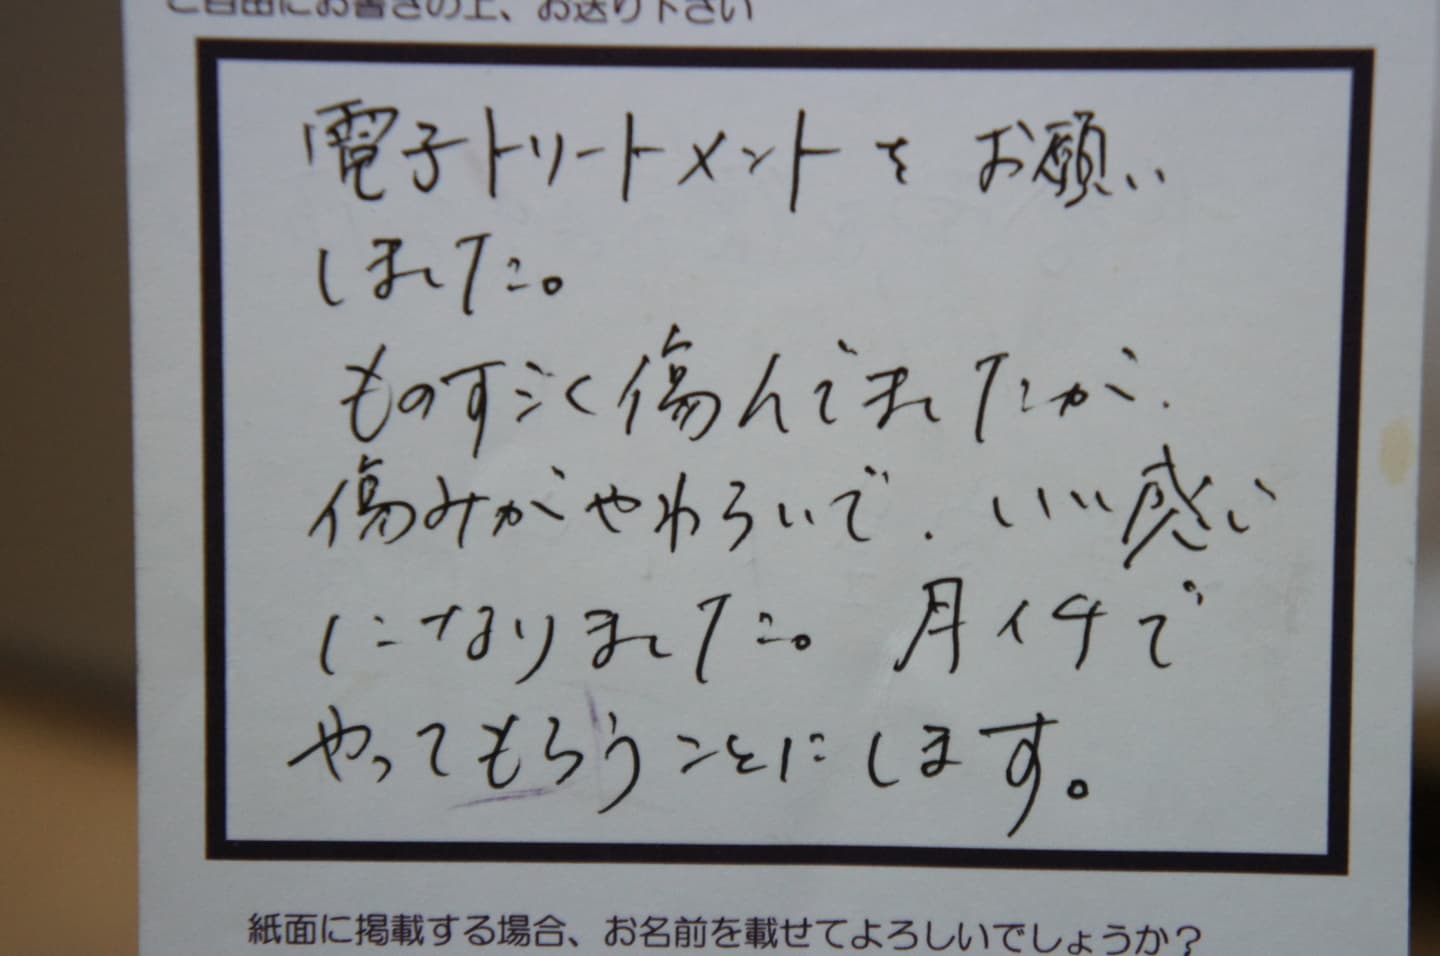 ご自由にお書きの上、お送り下さい
電子トリートメントをお願い
しました。
ものすごく傷んでましたが、
傷みがやわらいで、いい感じ
になりました。月イチで
やってもらうことにします。
紙面に掲載する場合、お名前を載せてよろしいでしょうか？